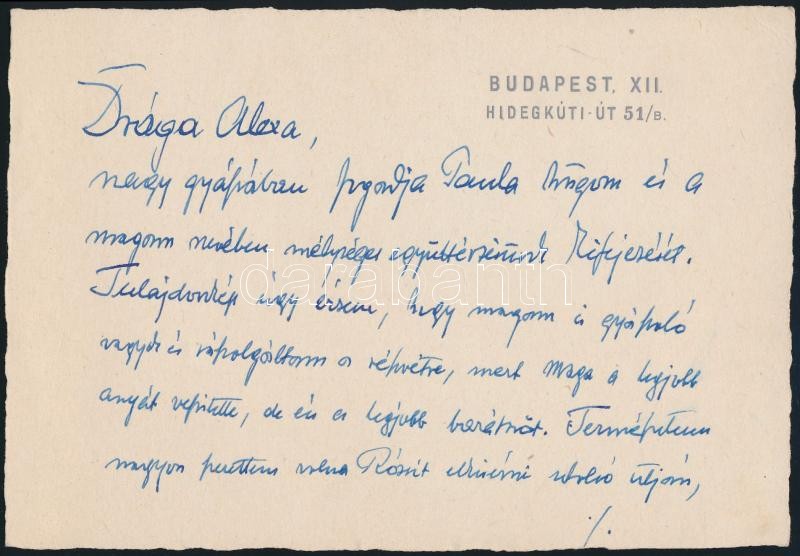 BUDAPEST, XII.
HIDEGKÚTI-ÚT 51/B.
Drága Alexa,
nagy gyászában fogadja Paula húgom és a
magam nevében mélységes együttérzésünk kifejezését.
Tulajdonkép úgy érzem, hogy magam is gyászoló
vagyok és rászolgáltam a részvétre, mert Maga a legjobb
anyát veszítette, de én a legjobb barátnőt. Természetesen
nagyon szerettem volna Rózsit elkisérni utolsó útján,
./.
darabanth